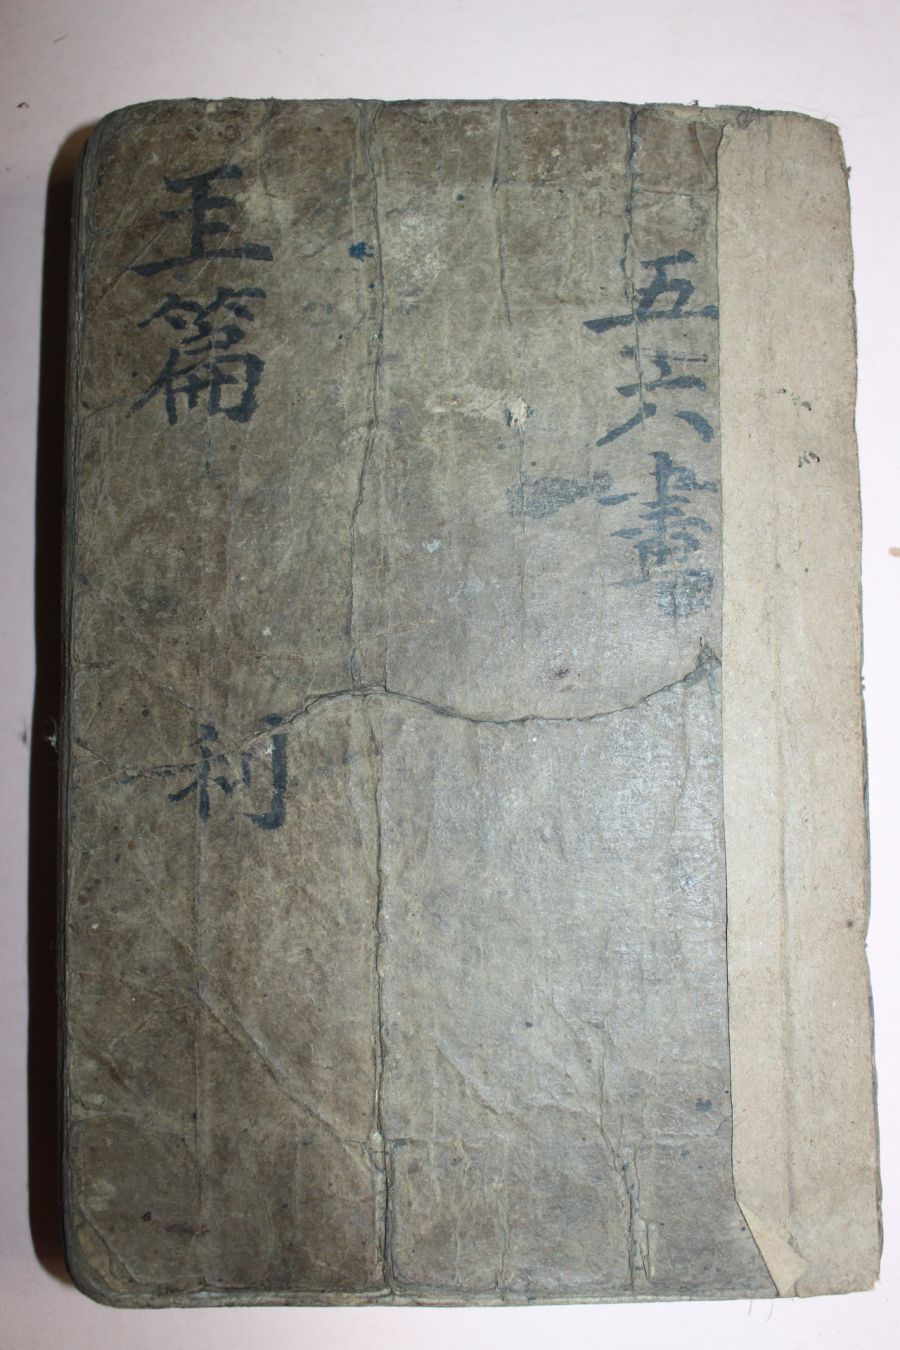 五六畫
玉篇
利